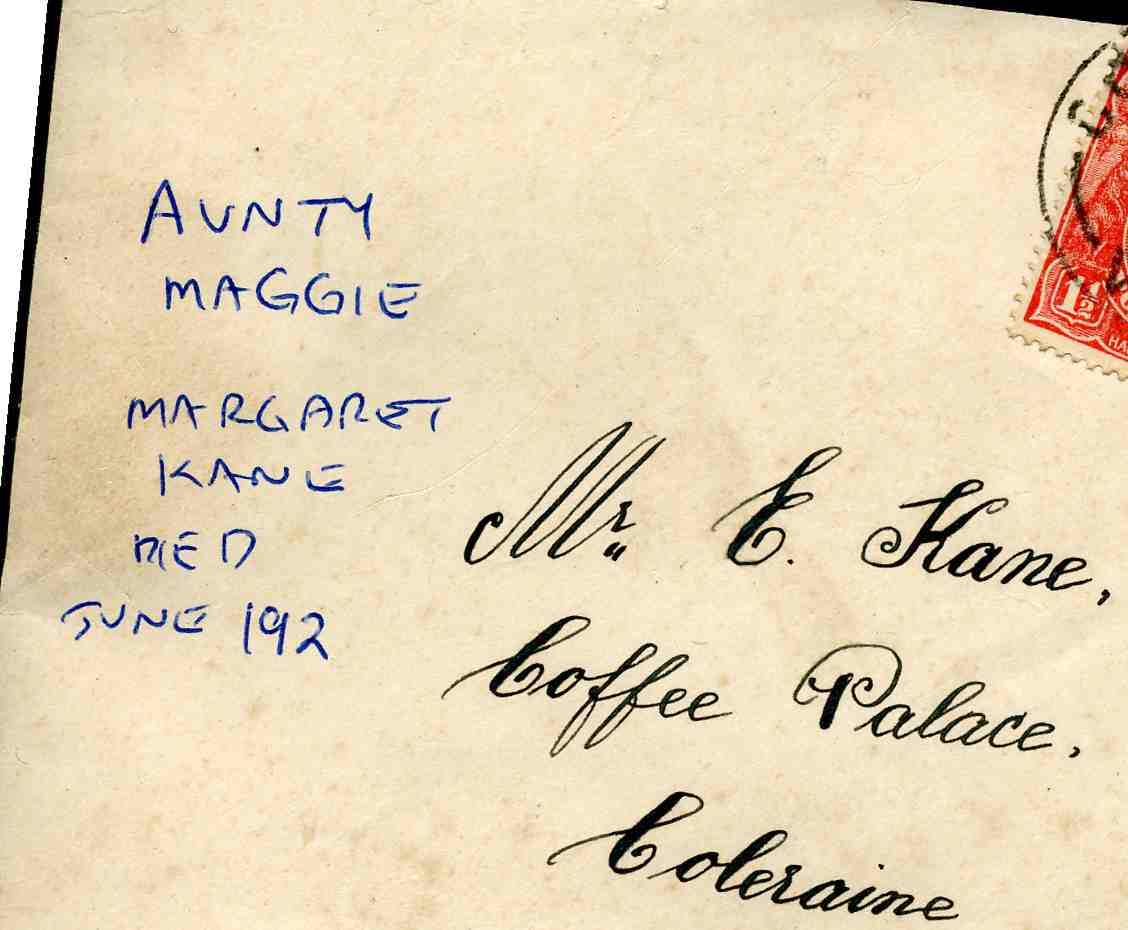 AUNTY
MAGGIE
MARGARET
KANE
DIED
JUNE 192
Mr. E. Kane,
Coffee Palace,
Coleraine
1½
HA